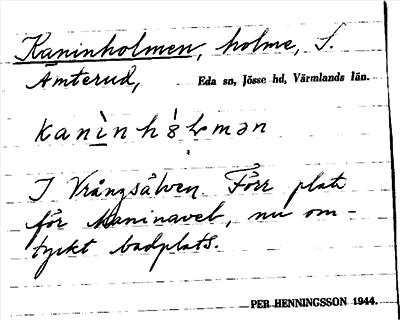 Kaninholmen, holme, S.
Åmterud, Eda sn, Jösse hd, Värmlands län.
kanìnhò̀lmən
I Vrångsälven. Förr plats
för kaninavel, nu om-
tyckt badplats.
PER HENNINGSSON 1944.